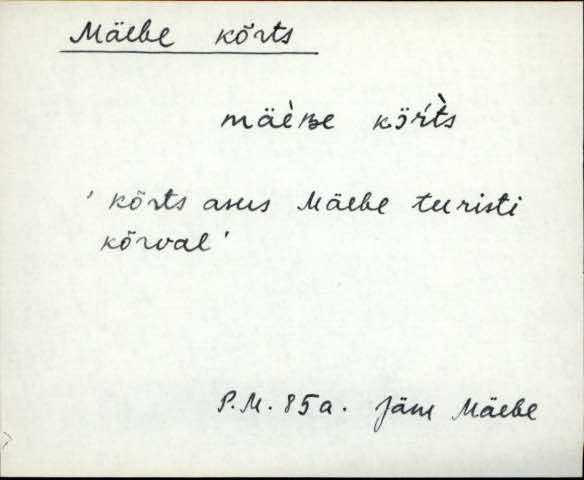 Mäebe kõrts
mäèʙe kö̭ŕt̀s
' kõrts asus Mäebe teeristi
kõrval '
P.M. 85a. Jäm Mäebe